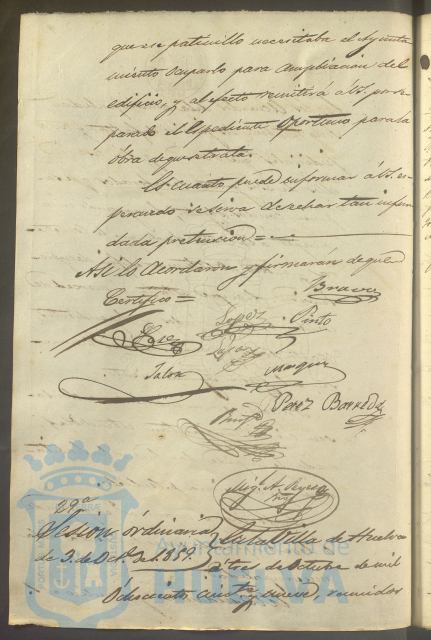 que ese patinillo necesitaba el Ayunta
miento ocuparlo para ampliacion del
edificio, y al efecto remitirá a V.S. pre
parado el Espediente oportuno para la
obra de que se trata.
Es cuanto puede informar á V.S. es
perando se sirva desechar tan infun
dada pretension =
Asi lo acordaron y firmarán de que
Certifico =
Bravo
Lopez
Pinto
Jalon
Marquez
Perez Barreda
Mig. A. Reyes
29.a
Sesion órdinaria
de 3. de Oct.e de 1.859.
En la Villa de Huelva
a tres de Octubre de mil
Ochocientos cincta y nueve, reunidos
Ayuntamiento de
HUELVA